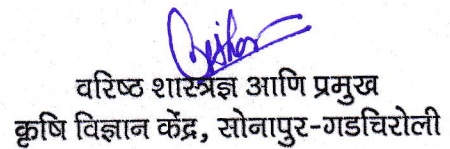 वरिष्ठ शास्त्रज्ञ आणि प्रमुख
कृषि विज्ञान केंद्र, सोनापुर-गडचिरोली